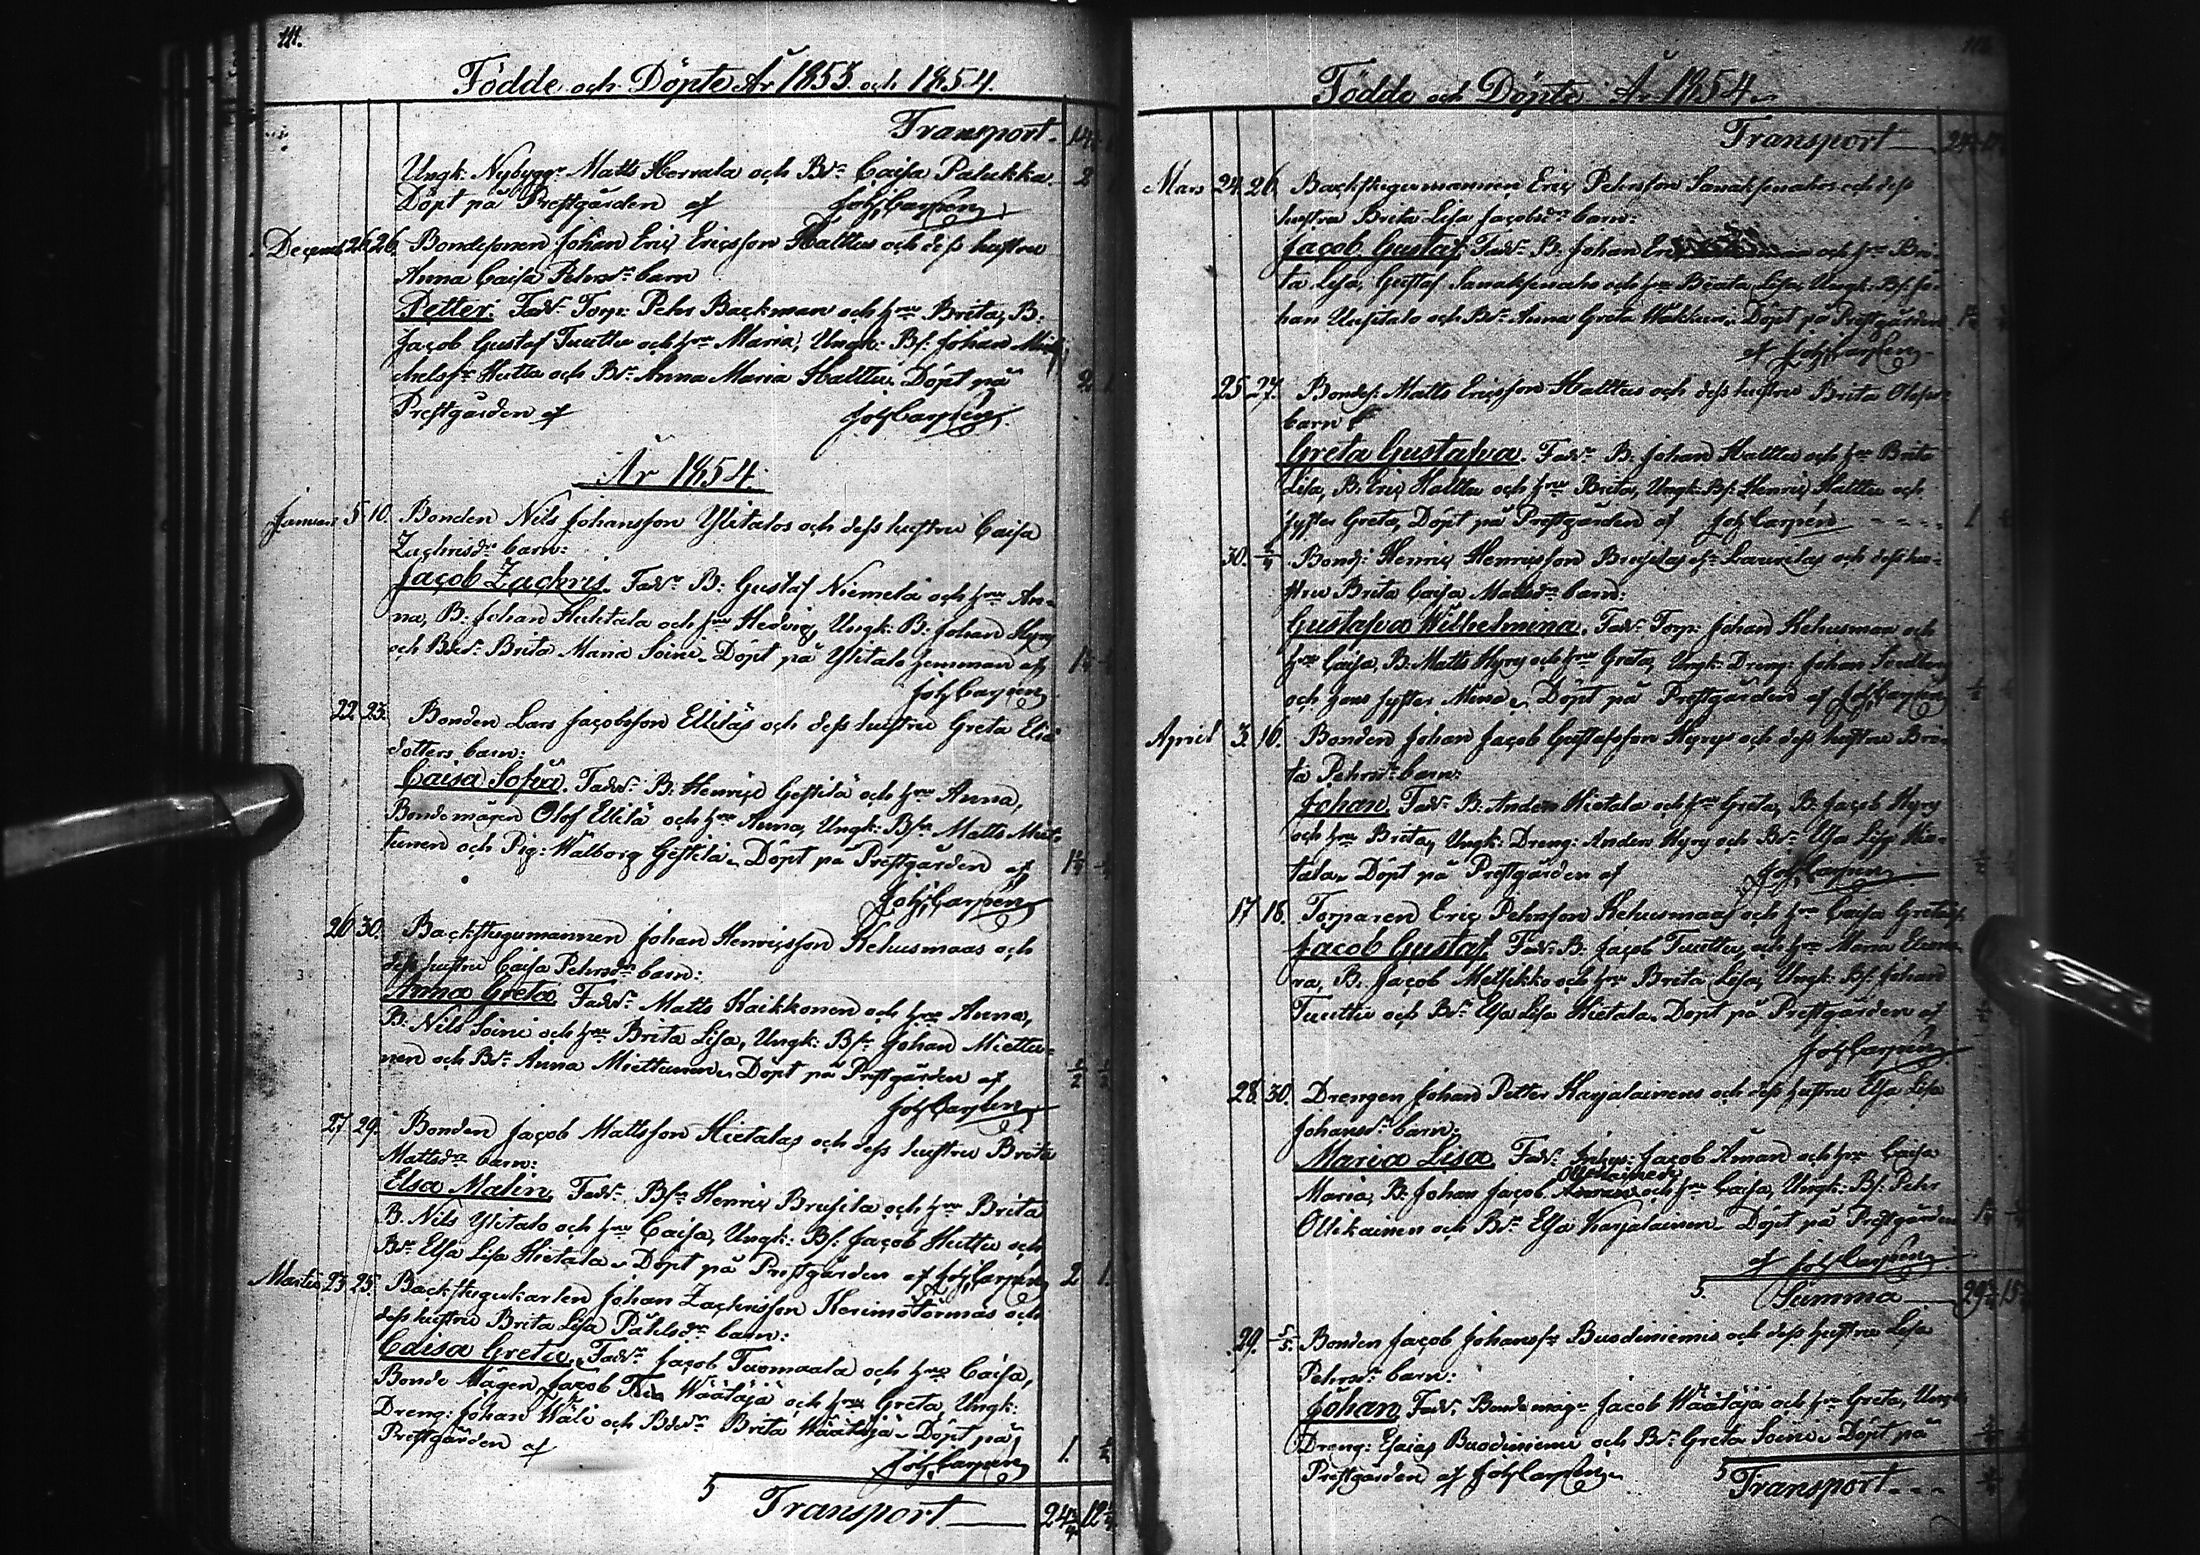 111.
Födde och Döpte År 1853 och 1854.
Transport
Ungk: Nybygg: Matts Hervala och Bdr Caisa Palukka. 2
Döpt på Prestgården af Joh, Carpén
Decemb 26 26. Bondesonen Johan Eric Ericsson Halttus och dess hustru
Anna Caisa Pehrsdr barn
Petter. Fadr Torp: Pehr Backman och hru Brita, B.
Jacob Gustaf Tuuttu och hru Maria, Ungk: Bs: Johan
Huttu och Bdr Anna Maria Halttu. Döpt på 2
Prestgården af Joh Carpén.
År 1854.
Januari 5 10. Bonden Nils Johansson Ylitalos och dess hustru Caisa
Zachrisdr barn:
Jacob Zachris. Fadr B: Gustaf Niemelä och hru An-
na, B: Johan Huhtala och hru Hedvig, Ungk: B: Johan Hyry
och Bdr Brita Maria Soini. Döpt på Ylitalo hemman af
Joh, Carpén
22 23. Bonden Lars Jacobsson Elliläs och dess hustru Greta Elias
dotters barn:
Caisa Sofia. Fadr B: Henric Gestilä och hru Anna,
Bondemågen Olof Ellilä och hru Anna, Ungk: Bsn Matts Miet-
tunen och Pig: Walborg Gestilä. Döpt på Prestgården af
Joh, Carpén
26 30. Backstugumannen Johan Henricsson Kehusmaas och
dess hustru Caisa Pehrsdr barn:
Anna Greta Fadr Matts Kaikkonen och hru Anna,
B: Nils Soini och hru Brita Lisa, Ungk: Bsn Johan Miettu-
nen och Bdr Anna Miettunen. Döpt på Prestgården af ½ ½
Joh Carpén
27 29. Bonden Jacob Mattsson Hietalas och dess hustru Brita
Mattsdr barn:
Elsa Malin. Fadr Bsn Henric Brusila och hru Brita
B. Nils Ylitalo och hru Caisa, Ungk: Bs: Jacob Huttu och
Bdr Elsa Lisa Hietala. Döpt på Prestgården af Joh, Carpén 2 1.
Martii 23 25. Backstugukarlen Johan Zachrisson Kerimötörmäs och
dess hustru Brita Lisa Påhlsdr barn:
Caisa Greta. Fadr Jacob Tuomaala och hru Caisa,
Bonde Mågen Jacob Wäätäjä och hru Greta, Ungk:
Dreng: Johan Wäli och Bdr Brita Wäätäjä. Döpt på
Prestgården af 1.
Joh, Carpén
5 Transport 24¾ 12¾
Födde och Döpte År 1854.
Transport
Mars 24. 26. Backstugumannen Eric Pehrsson Sanaksenahos och dess
hustru Brita Lisa Jacobsdr barn:
Jacob Gustaf. Fadr B: Johan Eric och hru Bri-
ta Lisa, Gustaf Sanaksenaho och hru Beata Lisa, Ungk: Bs: Jo-
han Uusitalo och Bdr Anna Greta. Döpt på Prestgården
af Joh, Carpén
25 27. Bondes: Matts Ericsson Halttus och dess hustru Brita Olofsdr
barn
Greta Gustafva. Fadr B: Johan Halttu och hru Brita
Lisa, B: Eric Halttu och hru Brita, Ungk: Bs: Henric Halttu och
syster Greta, Döpt på Prestgården af Joh, Carpén 1
30. 2/4 Bonds: Henric Henricsson Brusilas och dess hu-
stru Brita Caisa Mattsdr barn:
Gustafva Wilhelmina. Fadr Torp: Johan Kehusmaa och
hru Caisa, B: Matts Hyry och hru Greta, Ungk: Dreng: Johan Sandberg
och hans syster Mina. Döpt på Prestgården af Joh, Carpén
April 3. 16. Bonden Johan Jacob Gustafsson Hyrys och dess hustru Bri-
ta Pehrsdr barn:
Johan. Fadr B: Anders Hietala och hru Greta, B: Jacob Hyry
och hru Brita, Ungk: Dreng: Anders Hyry och Bdr Elsa Lisa Hie-
tala. Döpt på Prestgården af Joh, Carpén
17 18. Torparen Eric Pehrsson Kehusmaas och hru Caisa Gretas
Jacob Gustaf. Fadr B: Jacob Tuuttu och hru Maria Eleono-
ra, B: Jacob Meltikko och hru Brita Lisa, Ungk: Bs: Johan
Tuuttu och Bdr Elsa Lisa Hietala. Döpt på Prestgården af
Joh Carpén
28. 30. Drengen Johan Petter Karjalainens och dess hustru Elsa Lisa
Johansdr barn:
Maria Lisa. Fadr Jacob Åman och hru Caisa
Ollikainen
Maria, B: Johan Jacob och hru Caisa, Ungk: Bs: Pehr
Ollikainen och Bdr Elsa Karjalainen. Döpt på Prestgården
af Joh Carpén
5. Summa 29¾ 15
29. 5/5. Bonden Jacob Johanss: Buodiniemis och dess hustru Lisa
Pehrsdr barn:
Johan. Fadr Bondemåg: Jacob Wäätäjä och hru Greta, Ungk
Dreng: Esaias Buodiniemi och Bdr Greta Soini. Döpt på
Prestgården af Joh Carpén
5 Transport